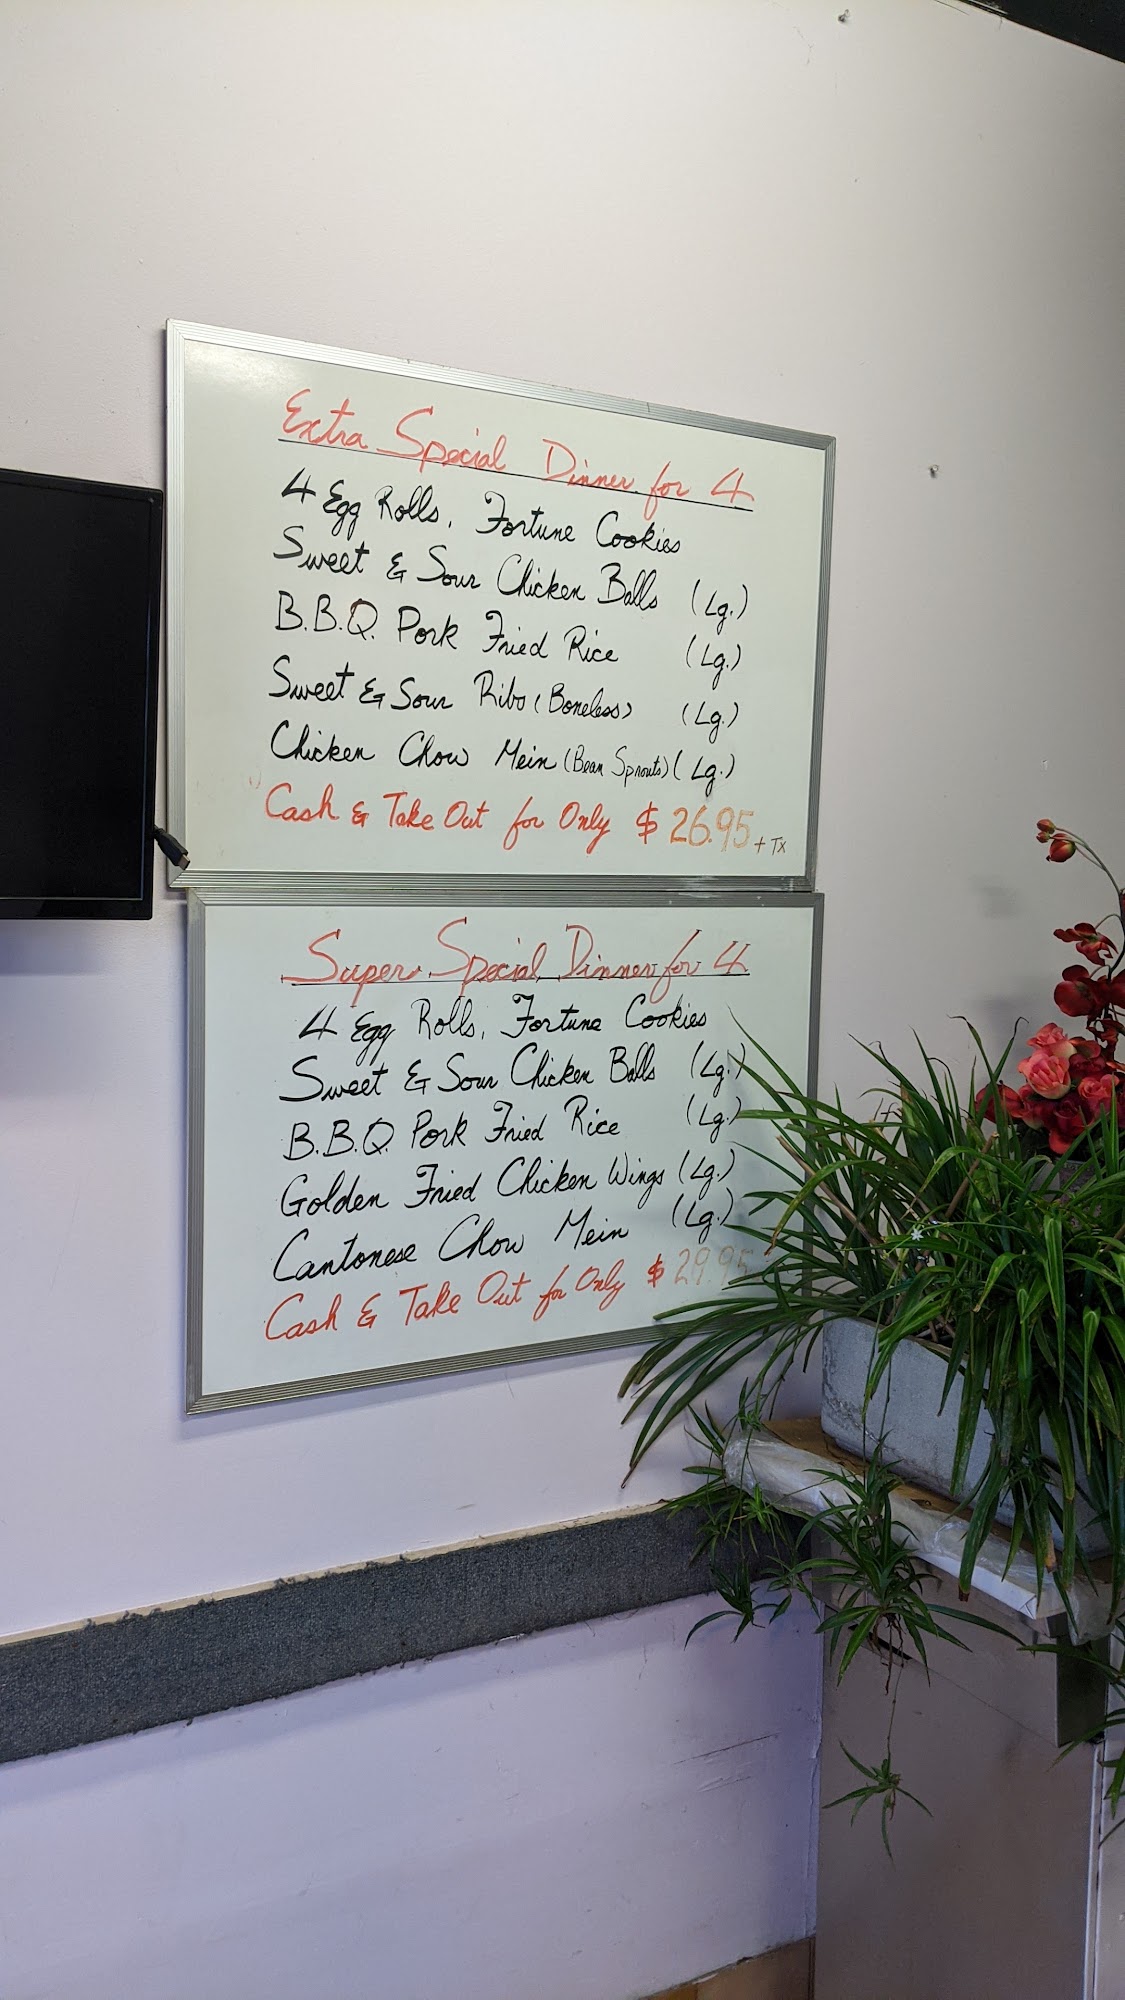 Extra Special Dinner for 4
4 Egg Rolls, Fortune Cookies
Sweet & Sour Chicken Balls (Lg.)
B.B.Q. Pork Fried Rice (Lg.)
Sweet & Sour Ribs (Boneless) (Lg.)
Chicken Chow Mein (Bean Sprouts) (Lg.)
Cash & Take Out for Only $26.95 + Tx
Super Special Dinner for 4
4 Egg Rolls, Fortune Cookies
Sweet & Sour Chicken Balls (Lg.)
B.B.Q. Pork Fried Rice (Lg.)
Golden Fried Chicken Wings (Lg.)
Cantonese Chow Mein (Lg.)
Cash & Take Out for Only $29.95